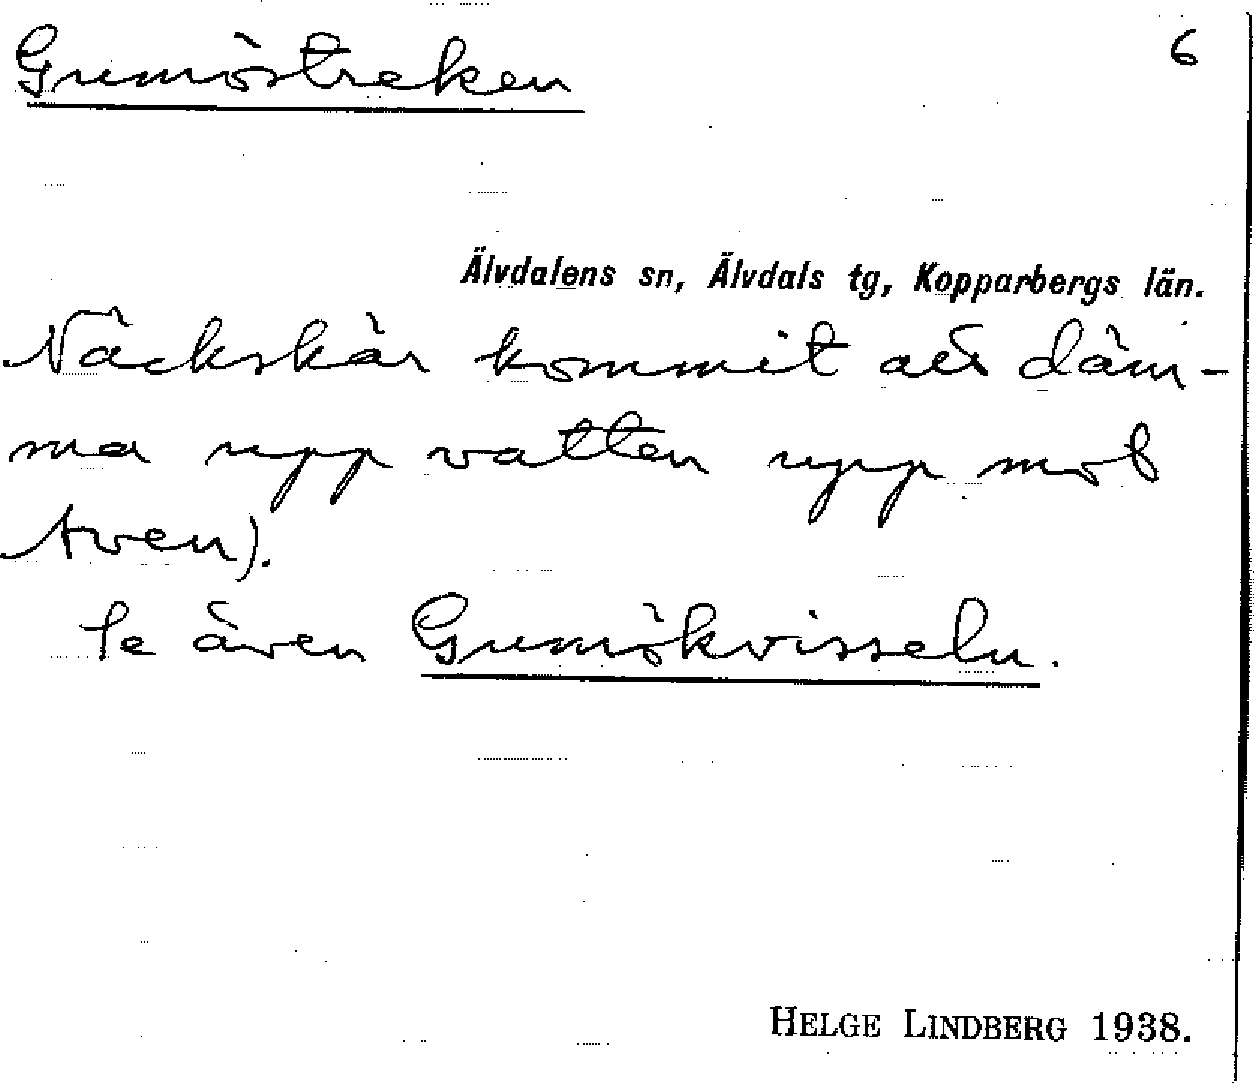 Gumöstreken 6
Älvdalens sn, Älvdals tg, Kopparbergs län.
Näckskär kommit att däm-
ma upp vatten upp mot
även).
Se även Gumökvisseln.
HELGE LINDBERG 1938.